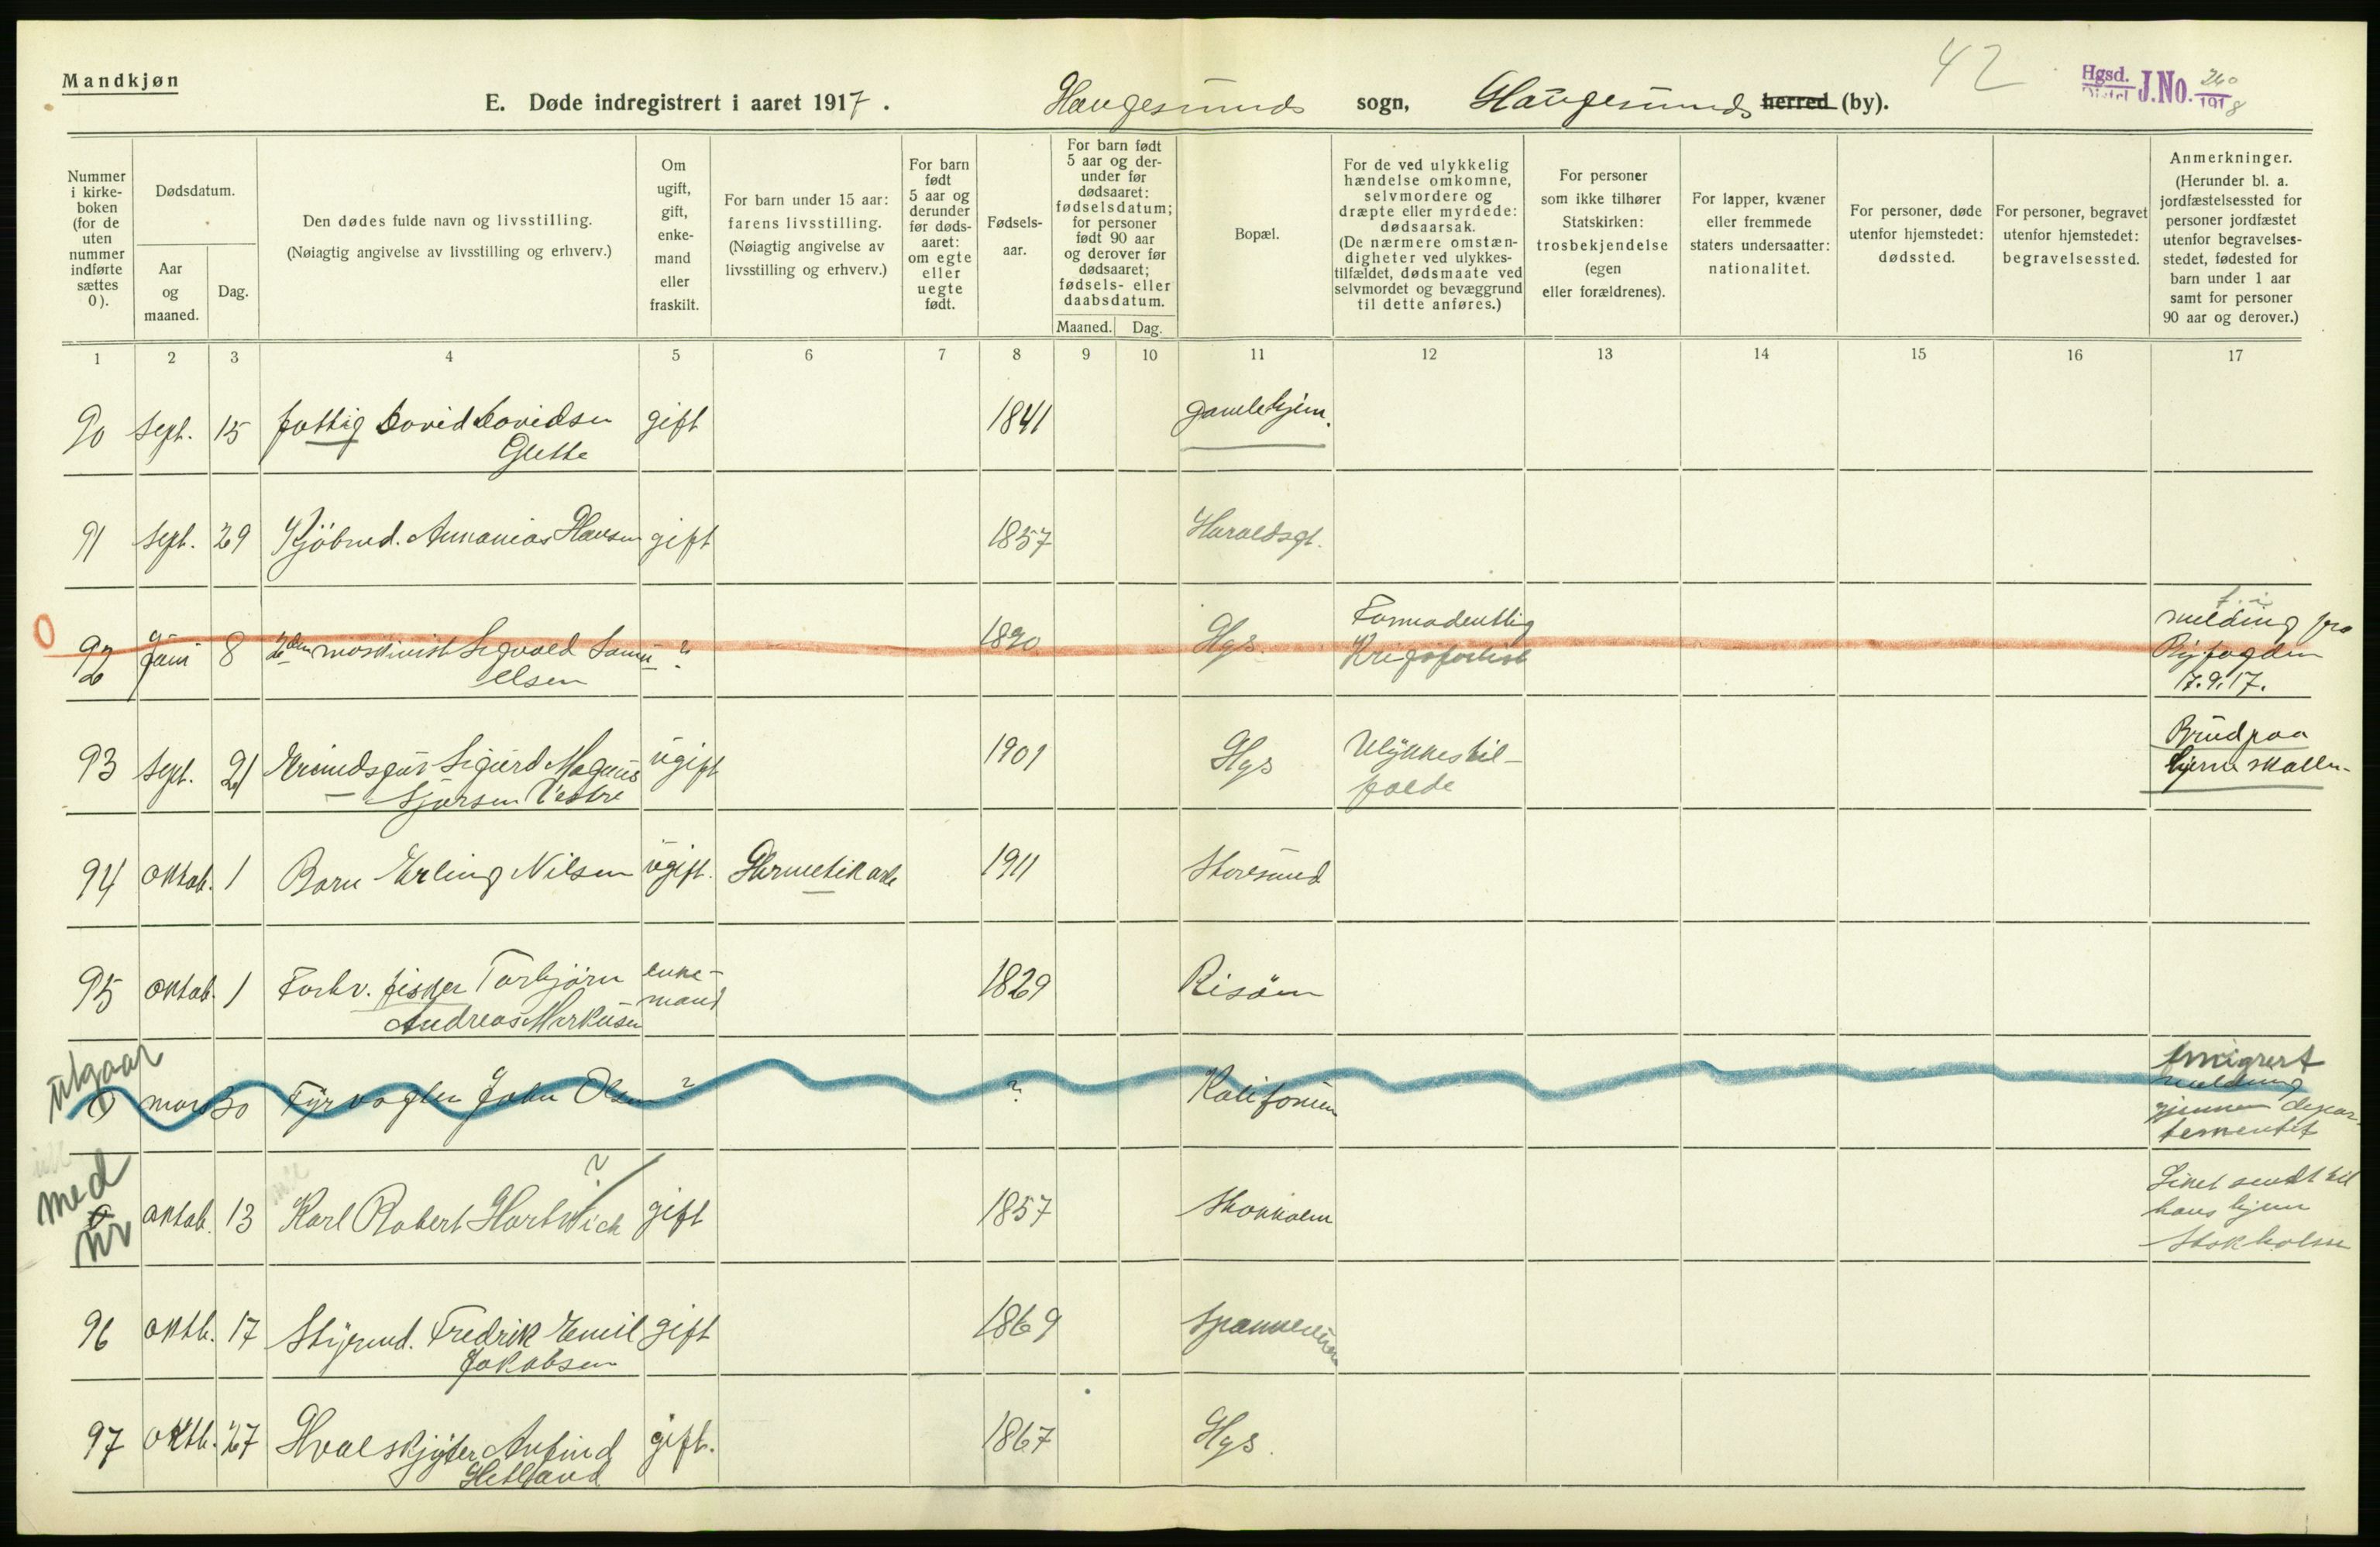 Mandkjøn
E. Døde indregistrert i aaret 1917.
Haugesunds sogn, Haugesunds herred (by).
42
Hgsd. Distr J.No. 260 1918
Nummer i kirke-boken (for de uten nummer indførte sættes 0).
Dødsdatum.
Aar og maaned.
Dag.
Den dødes fulde navn og livsstilling.
(Nøiagtig angivelse av livsstilling og erhverv.)
Om ugift, gift, enke-mand eller fraskilt.
For barn under 15 aar: farens livsstilling.
(Nøiagtig angivelse av livsstilling og erhverv.)
For barn født 5 aar og derunder før døds-aaret: om egte eller uegte født.
Fødsels-aar.
For barn født 5 aar og der-under før dødsaaret: fødselsdatum; for personer født 90 aar og derover før dødsaaret; fødsels- eller daabsdatum.
Maaned.
Dag.
Bopæl.
For de ved ulykkelig hændelse omkomne, selvmordere og dræpte eller myrdede: dødsaarsak.
(De nærmere omstæn-digheter ved ulykkes-tilfældet, dødsmaate ved selvmordet og bevæggrund til dette anføres.)
For personer som ikke tilhører Statskirken: trosbekjendelse (egen eller forældrenes).
For lapper, kvæner eller fremmede staters undersaatter: nationalitet.
For personer, døde utenfor hjemstedet: dødssted.
For personer, begravet utenfor hjemstedet: begravelsessted.
Anmerkninger.
(Herunder bl. a. jordfæstelsessted for personer jordfæstet utenfor begravelses-stedet, fødested for barn under 1 aar samt for personer 90 aar og derover.)
1 2 3 4 5 6 7 8 9 10 11 12 13 14 15 16 17
90 Sept. 15 fattig David Davidsen gift 1841 Gamlehjem.
Glette
91 Sept. 29 Kjöbmd. Annanias Hansen gift 1857 Haraldsgt.
0
92 Juni 8 2den maskinist Sigvald Samu- ? 1890 Hgs. Formodentlig melding fra
elsen Krigsforlist Byfogden
17.9.17.
93 Sept. 21 Erindsgut Sigurd Magnus ugift 1901 Hgs Ulykkestil- Brud paa
Sjursen Vestre fælde hjerneskallen
94 Oktob. 1 Barn Erling Nilsen ugift. Hermetikarb 1911 Storesund
95 Oktob. 1 Forhv. fisker Torbjörn enke- 1829 Risöen
Andreas Markusen mand
utgaar
0 mars 30 Fyrvogter John Olsen ? ? Kalifornien Emigrert
melding
gjennem depar-
tementet
med
nr
0 Oktob. 13 Karl Robert Hartwich ? gift 1857 Stokholm Liket sendt til
hans hjem
Stokholm
96 Oktb. 17 Styrmd. Fredrik Emil gift 1869
Jakobsen
97 Oktb. 27 Hvalskjyter Anfind gift. 1867 Hgs.
Hetland